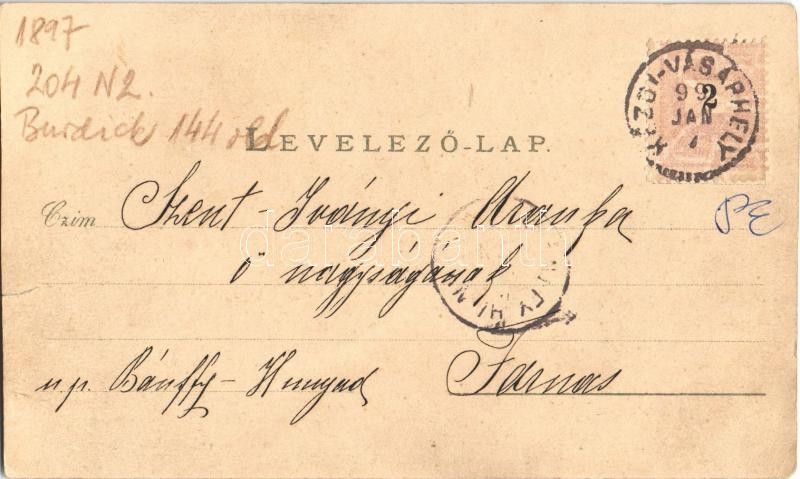 1897
204 N2.
Burdick 144 old
KÉZDI-VÁSÁRHELY
99
JAN
7
2
LEVELEZŐ-LAP.
PE
Czim Szent-Iványi Aranka
ő nagyságának
darabanth
u.p. Bánffy-Hunyad Farnas